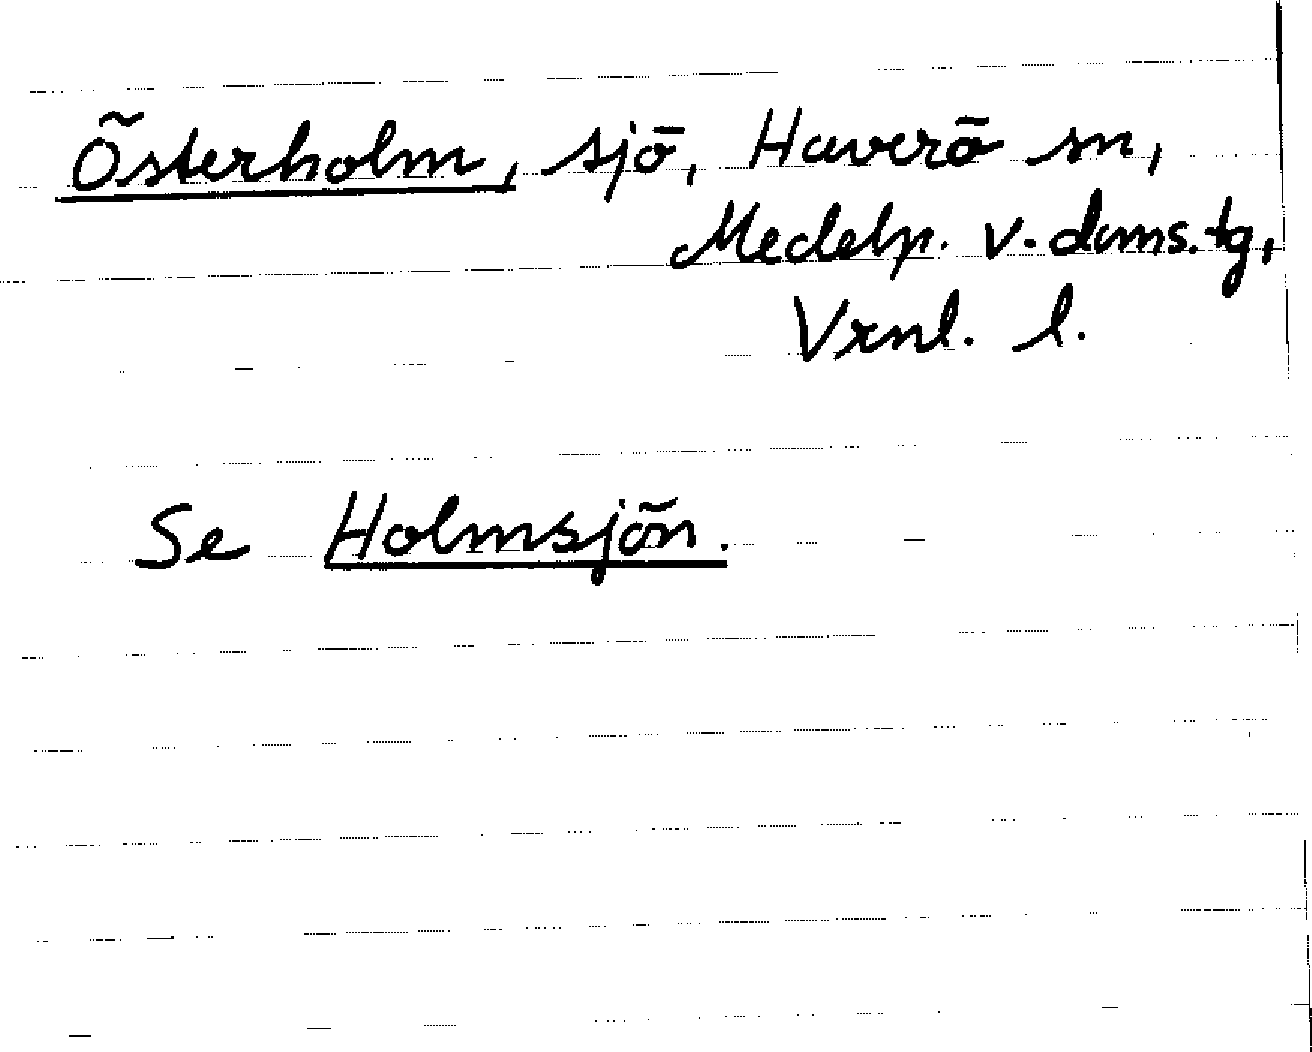 Österholm, sjö, Haverö sn,
Medelp. v. doms. tg,
Vrnl. l.
Se Holmsjön.